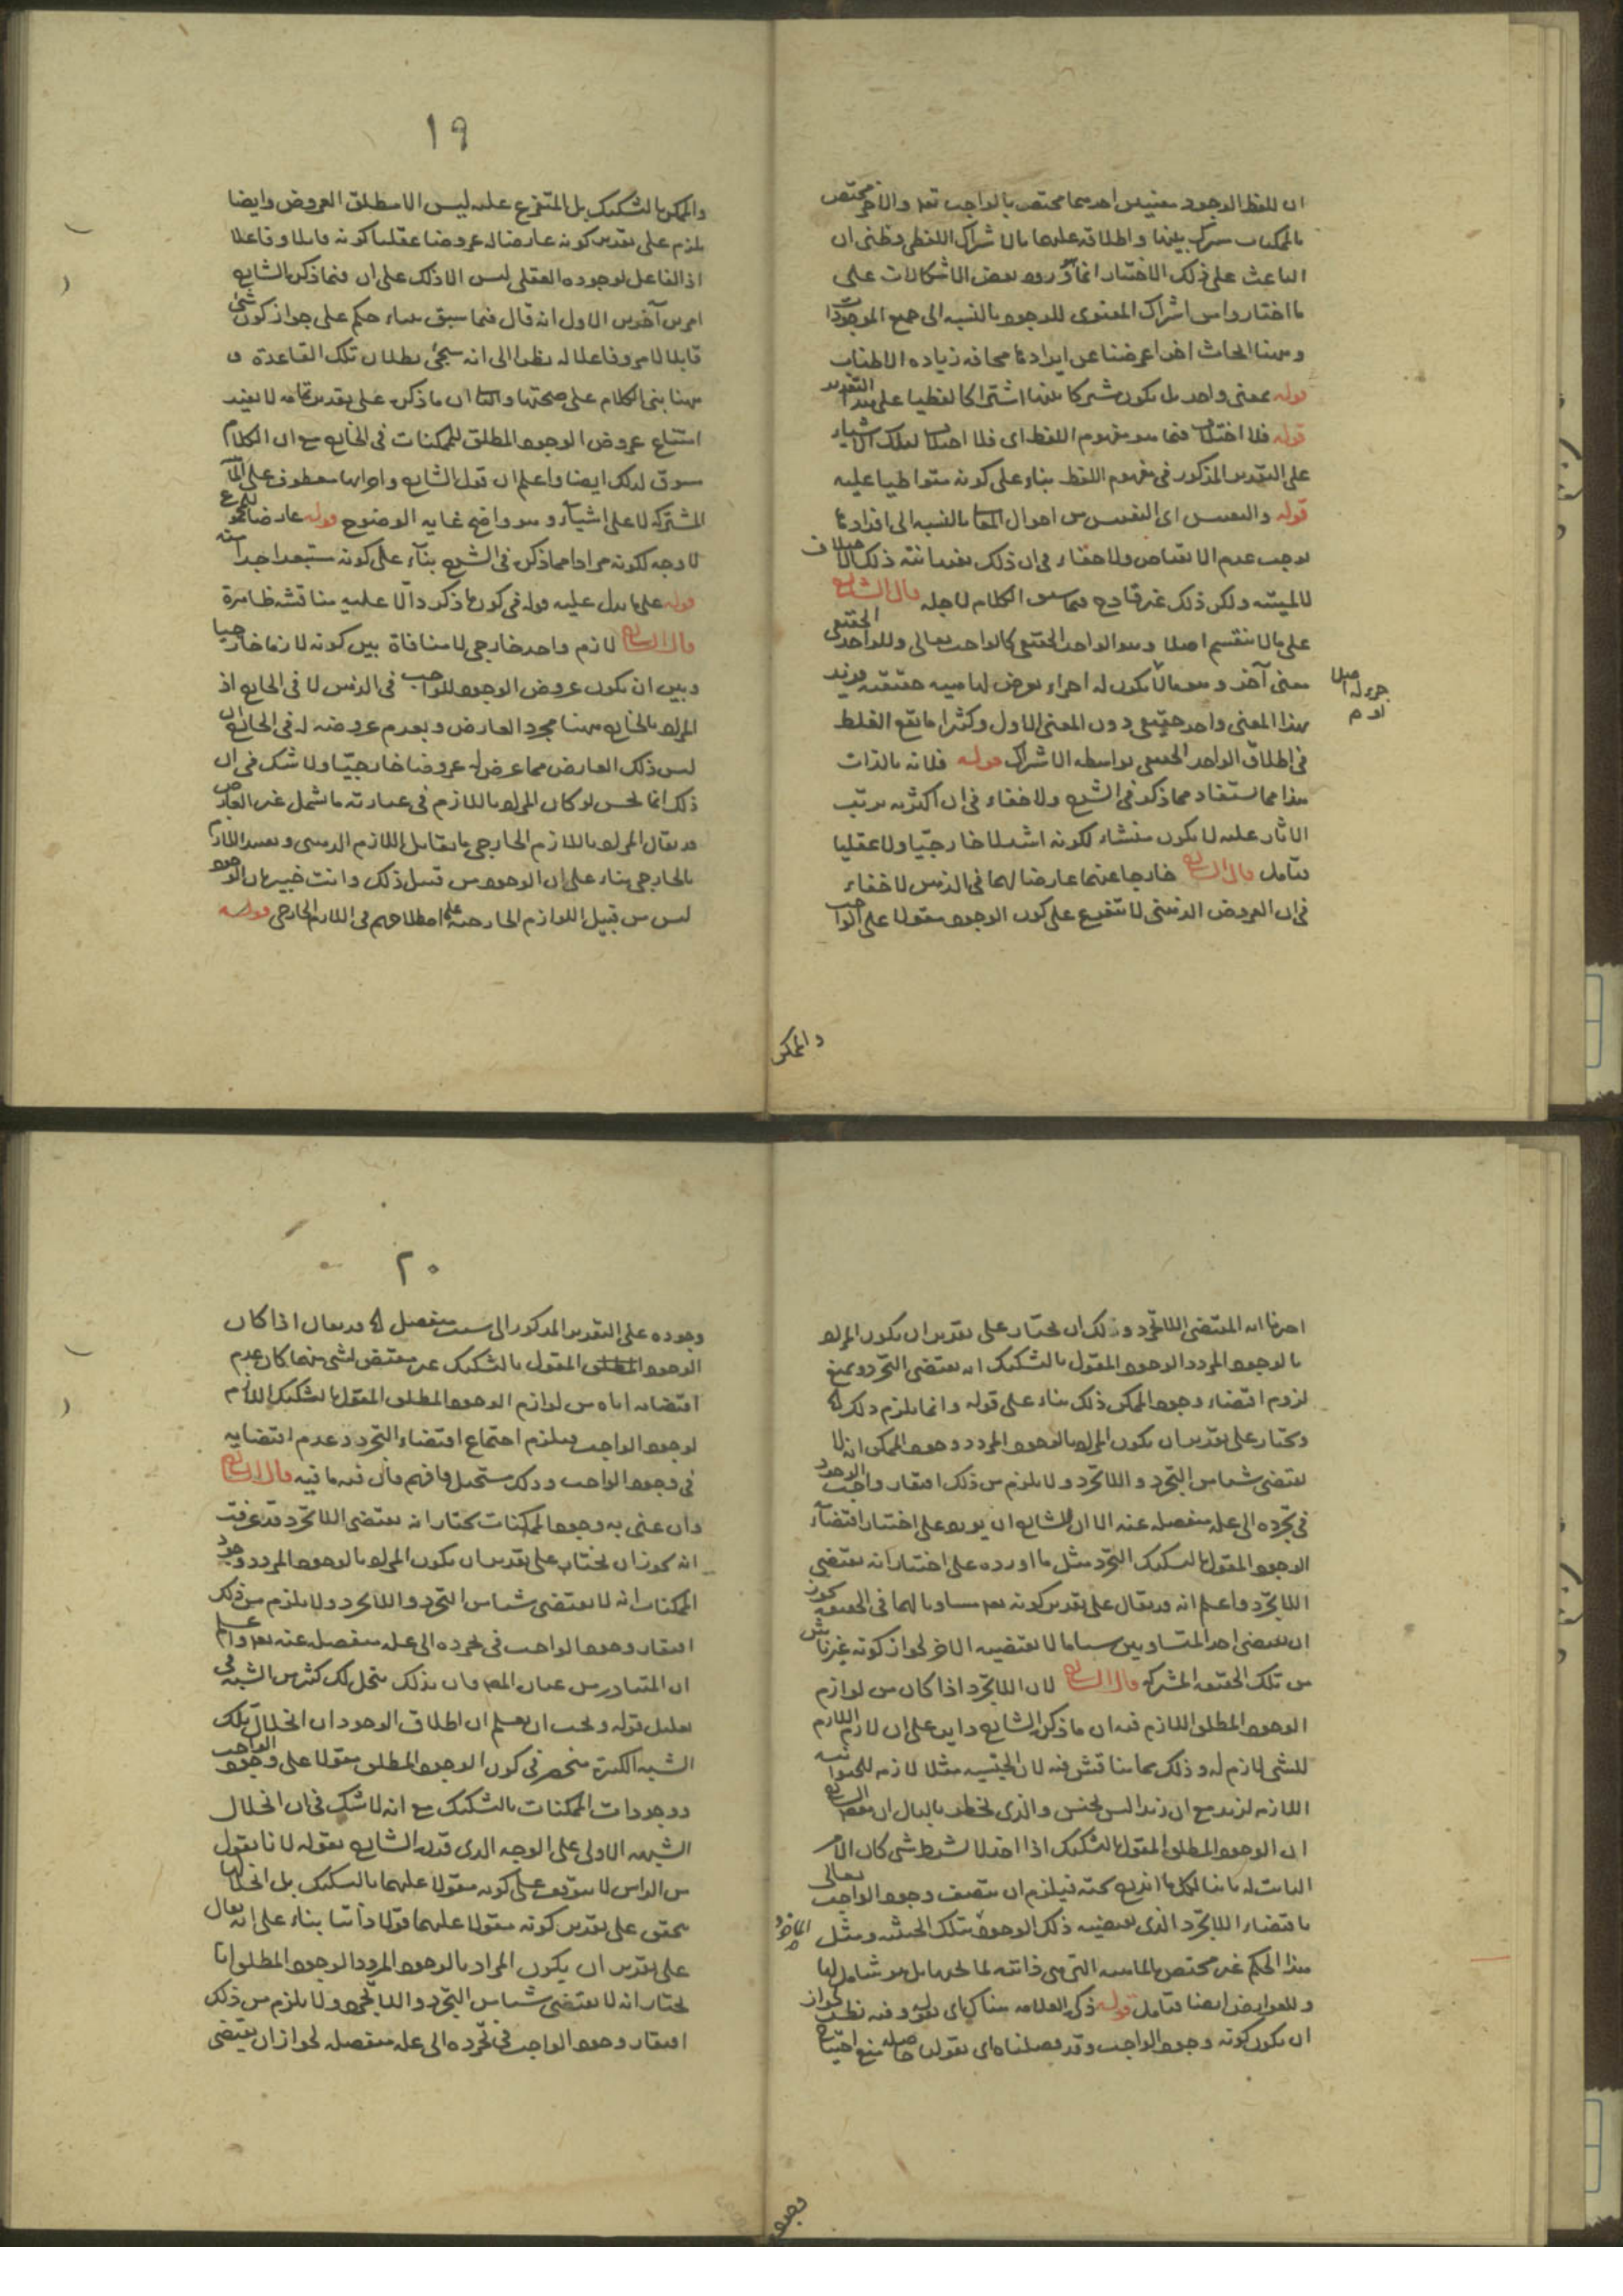 ان للفظ الوجود معنيين احدهما مختص بالواجب تعالى والاخر مختص
بالممكنات مشترك بينها واطلاقه عليها بالاشتراك اللفظي وظني ان
الباعث على ذلك الاختيار انما ورود بعض الاشكالات على
ما اختاروا من اشتراك المعنوي للوجود بالنسبة الى جميع الموجودات
وههنا ابحاث اخر اعرضنا عن ايرادها مخافة زيادة الاطناب
قوله بمعنى واحد بل يكون مشتركا بينها اشتراكا لفظيا على هذا التقدير
قوله فلا اختلاف فيما هو مفهوم اللفظ اى فلا اختلاف لتلك الاشياء
على التقدير المذكور في مفهوم اللفظ بناء على كونه متواطيا عليه
قوله والنفس اى النفس من احوال بالنسبة الى افرادها
يوجب عدم ولا خفاء في ان ذلك ذلك
ولكن ذلك غير قادح فيما سيق الكلام لاجله قال الشارح
على ما لا ينقسم اصلا وهو الواحد الحقيقي كالواجب تعالى وللواحد الحقيقي
معنى آخر وهو ما لا يكون له اجزاء لماهيته حقيقة وزيد
جزء له اصلا
بهذا المعنى واحد حقيقي دون المعنى الاول وكثيرا ما يقع الغلط
في اطلاق الواحد الحقيقي بواسطة الاشتراك قوله فلانه بالذات
هذا مما يستفاد مما ذكر في الشرح ولا خفاء في ان اكثرية ترتب
الاثار عليه لا يكون منشاء لكونه اشد لا خارجيا ولا عقليا
فتأمل قال الشارح خارجا عنهما عارضا لهما في الذهن لا خفاء
في ان العروض الذهني لا يتفرع على كون الوجود مقولا على الواجب
والممكن
١٩
والممكن بالتشكيك بل المتفرع عليه ليس الا مطلق العروض وايضا
يلزم على تقدير كونه عارضا له عروضا عقليا كونه قابلا وفاعلا
اذ الفاعل لوجوده العقلي ليس الا ذلك على ان فيما ذكره الشارح
امرين آخرين الاول انه قال فيما سبق حكم على جواز كون شئ
قابلا لامر وفاعلا له نظرا الى انه سيجئ بطلان تلك القاعدة و
ههنا بنى الكلام على صحتها والثاني ان ما ذكره على تقدير تمامه لا يفيد
امتناع عروض الوجود المطلق للممكنات في الخارج مع ان الكلام
سوق لذلك ايضا واعلم ان قول الشارح معطوف على
المشتركة لا على اشياء وهو واضح غاية الوضوح قوله عارضا
لا وجه لكونه مرادا مما ذكره في الشرح بناء على كونه مستبعدا جدا
قوله على ما يدل عليه قوله في كون ما ذكر دالا عليه مناقشة ظاهرة
قال الشارح لازم واحد خارجي لا منافاة بين كونه لازما خارجيا
وبين ان يكون عروض الوجود للواجب في الذهن لا في الخارج اذ
المراد بالخارج ههنا مجرد العارض وبعدم عروضه له في الخارج ان
ليس ذلك العارض مما عرض له عروضا خارجيا ولا شك في ان
ذلك انما يحسن لو كان المراد باللازم في عبارته ما يشمل غير العارض
قد يقال المراد باللازم الخارجي ما يقابل اللازم الذهني وتقييد اللازم
بالخارجي بناء على ان الوجود من قبيل ذلك وانت خبير بان الوجود
ليس من قبيل اللوازم الخارجية على اصطلاحهم في اللازم الخارجي قوله
اخرنا انه المقتضى اللاتجرد وذلك ان نختار على تقدير ان يكون المراد
بالوجود المردد الوجود المقول بالتشكيك انه يقتضى التجرد ونمنع
لزوم اقتضاء وجود الممكن ذلك بناء على قوله وانما يلزم ذلك
ونختار على تقدير ان يكون المراد بالوجود المردد وجود الممكن انه لا
يقتضى شيئا من التجرد واللاتجرد ولا يلزم من ذلك افتقار واجب الوجود
في تجرده الى علة منفصلة عنه الا ان للشارح ان يورد على اختيار اقتضاء
الوجود المقول بالتشكيك التجرد مثل ما اورده على اختيار انه يقتضى
اللاتجرد واعلم انه قد يقال على تقدير كونه مساويا لهما في الحقيقة يجوز
ان يقتضى احد المتساويين شيئا ما لا يقتضيه الاخر لجواز كونه غير ناش
من تلك الحقيقة المشتركة قال الشارح لان اللاتجرد اذا كان من لوازم
الوجود المطلق اللازم فيه ان ما ذكره الشارح داير على ان لازم اللازم
للشئ لازم له وذلك مما يناقش فيه لان الجنسية مثلا لازمة للحيوانية
اللازمة لزيد مع ان زيدا ليس بجنس والذي يخطر بالبال ان الشارح
ان الوجود المطلق المقول بالتشكيك اذا اخذ لا بشرط شئ كان الامر
الثابت له ثابتا لكل ما اندرج تحته فيلزم ان يتصف وجود الواجب تعالى
باقتضاء اللاتجرد الذي يقتضيه ذلك الوجود بتلك الحيثية ومثل
هذا الحكم غير مختص بالماهية التي هي ذاتية لما تحتها بل هو شامل لها
وللعوارض ايضا فتأمل قوله ذكر العلامة هناك اى وفيه نظر لجواز
ان يكون كونه وجود الواجب وقد فصلناه اى بقوله حاصله منع
٢٠
وجوده على التقدير المذكور الى سبب منفصل قد يقال اذا كان
الوجود المطلق المقول بالتشكيك غير مقتض لشئ منهما كان عدم
اقتضائه اياه من لوازم الوجود المطلق المقول بالتشكيك اللازم
لوجود الواجب فيلزم اجتماع اقتضاء التجرد وعدم اقتضايه
في وجود الواجب وذلك مستحيل فافهم فان فيه ما فيه قال الشارح
وان عنى به وجود الممكنات نختار انه يقتضى اللاتجرد قد عرفت
انه يجوز ان نختار على تقدير ان يكون المراد بالوجود المردد وجود
الممكنات انه لا يقتضى شيئا من التجرد واللاتجرد ولا يلزم من ذلك
افتقار وجود الواجب في تجرده الى علة منفصلة عنه واعلم
ان المتبادر من عبارة المصنف بذلك ينحل لك كثير من الشبه في
تعليل قوله ويجب ان يعلم ان اطلاق الوجود ان انحلال تلك
الشبه الكثيرة منحصر في كون الوجود المطلق مقولا على وجود الواجب
ووجودات الممكنات بالتشكيك مع انه لا شك في ان انحلال
الشبهة الاولى على الوجه الذي قرره الشارح بقوله لانا نقول
من الراس لا يتوقف على كونه مقولا عليهما بالتشكيك بل انحلالها
يتحقق على تقدير كونه مقولا عليهما قولا ذاتيا بناء على انه يقال
على تقدير ان يكون المراد بالوجود المردد الوجود المطلق انا
نختار انه لا يقتضى شيئا من التجرد واللاتجرد ولا يلزم من ذلك
افتقار وجود الواجب في تجرده الى علة منفصلة لجواز ان يقتضى